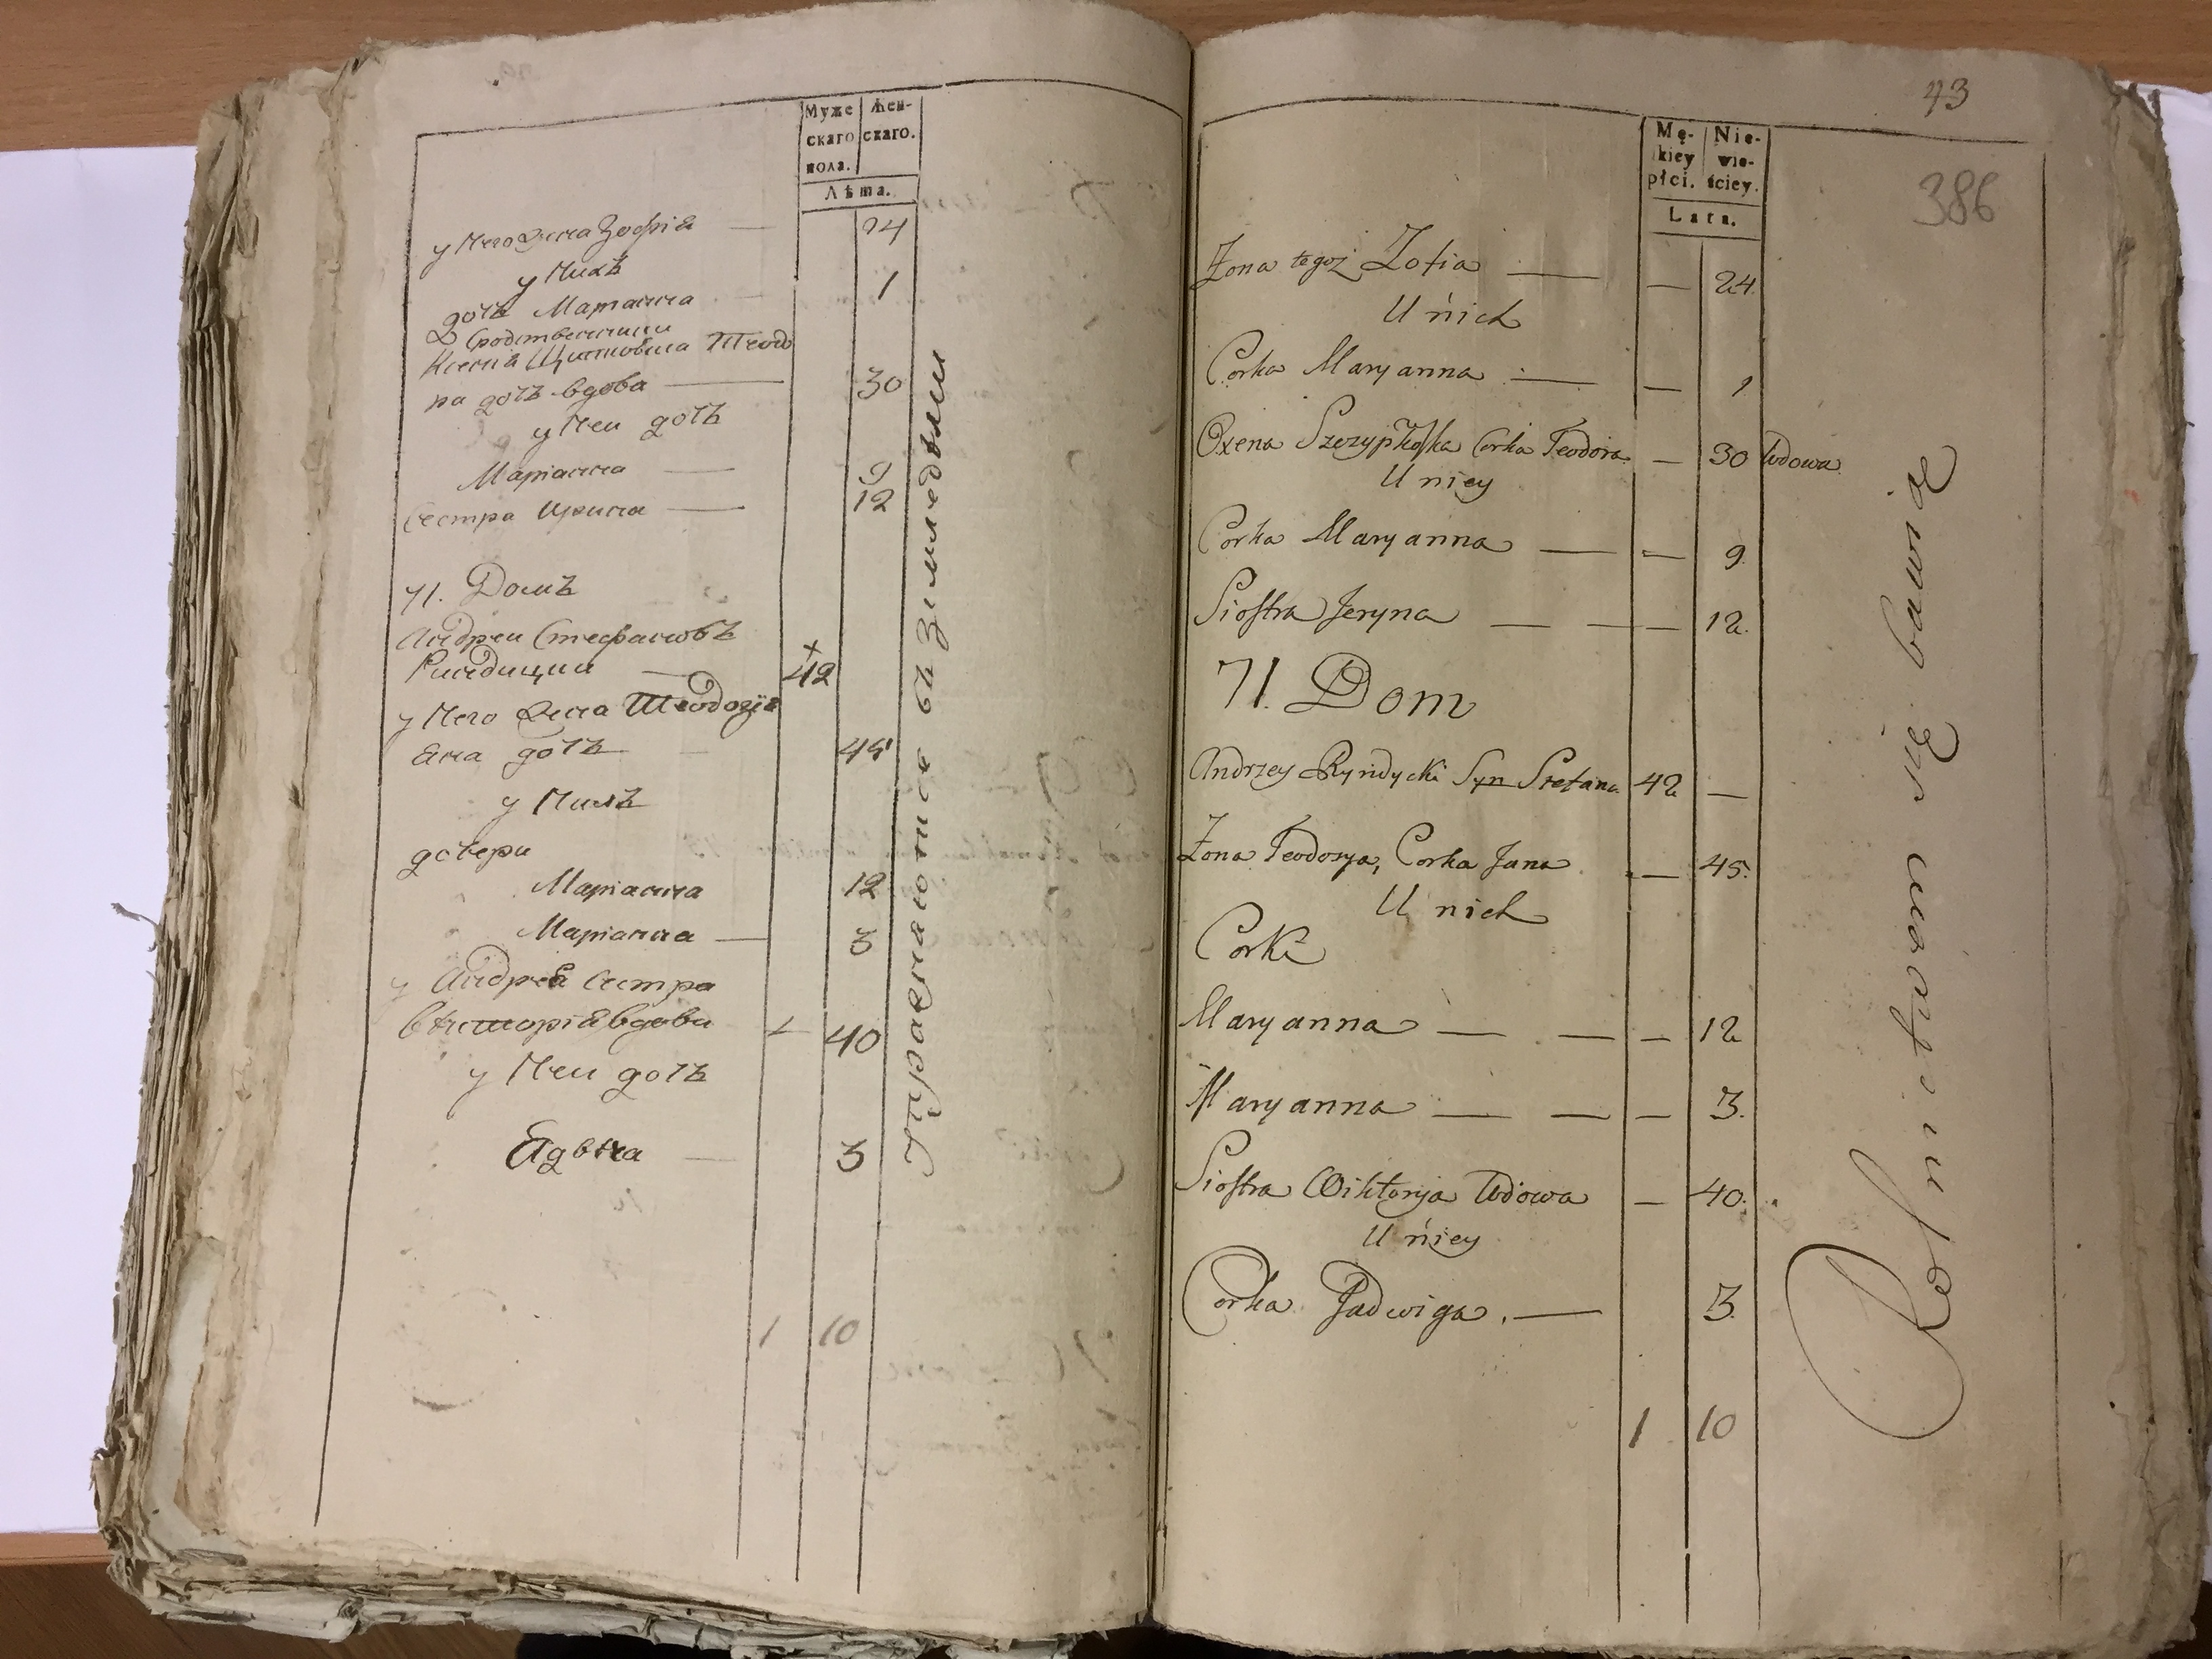 Муже
скаго
пола.
Жен-
скаго.
Лѣта.
у Него Жена Зофiя — 24
у Нихъ
дочь Марiанна — 1
Сродственница
Ксенiя Теодо
ра дочь вдова — 30
у Неи дочь
Марiанна — 9
Сестра Ирина — 12
71. Домъ
Андреи Стефановъ
Риндицки — 42
у Него Жена Теодозiя
Яна дочь — 45
у Нихъ
дочери
Марiанна 12
Марiанна — 3
у Андрея Сестра
Викторiя вдова + 40
у Неи дочь
Ядвига — 3
1 10
Упражняются въ Земледѣлiи
43
386
Mę-
kiey
płci.
Nie-
wie-
ściey.
Lata.
Żona tegoż Zofia — — 24.
U nich
Corka Maryanna — — 1
Oxena Corka Teodora — 30 Wdowa
U niey
Corka Maryanna — — 9
Siostra Jeryna — — — 12.
71. Dom
Andrzey Ryndycki Syn Stefana 42 —
Żona Teodozya, Corka Jana — 45.
U nich
Corki
Maryanna — — — 12
Maryanna — — — 3.
Siostra Wiktorya Wdowa — 40.
U niey
Corka Jadwiga. — 3.
1 10
Rolnictwem się bawią